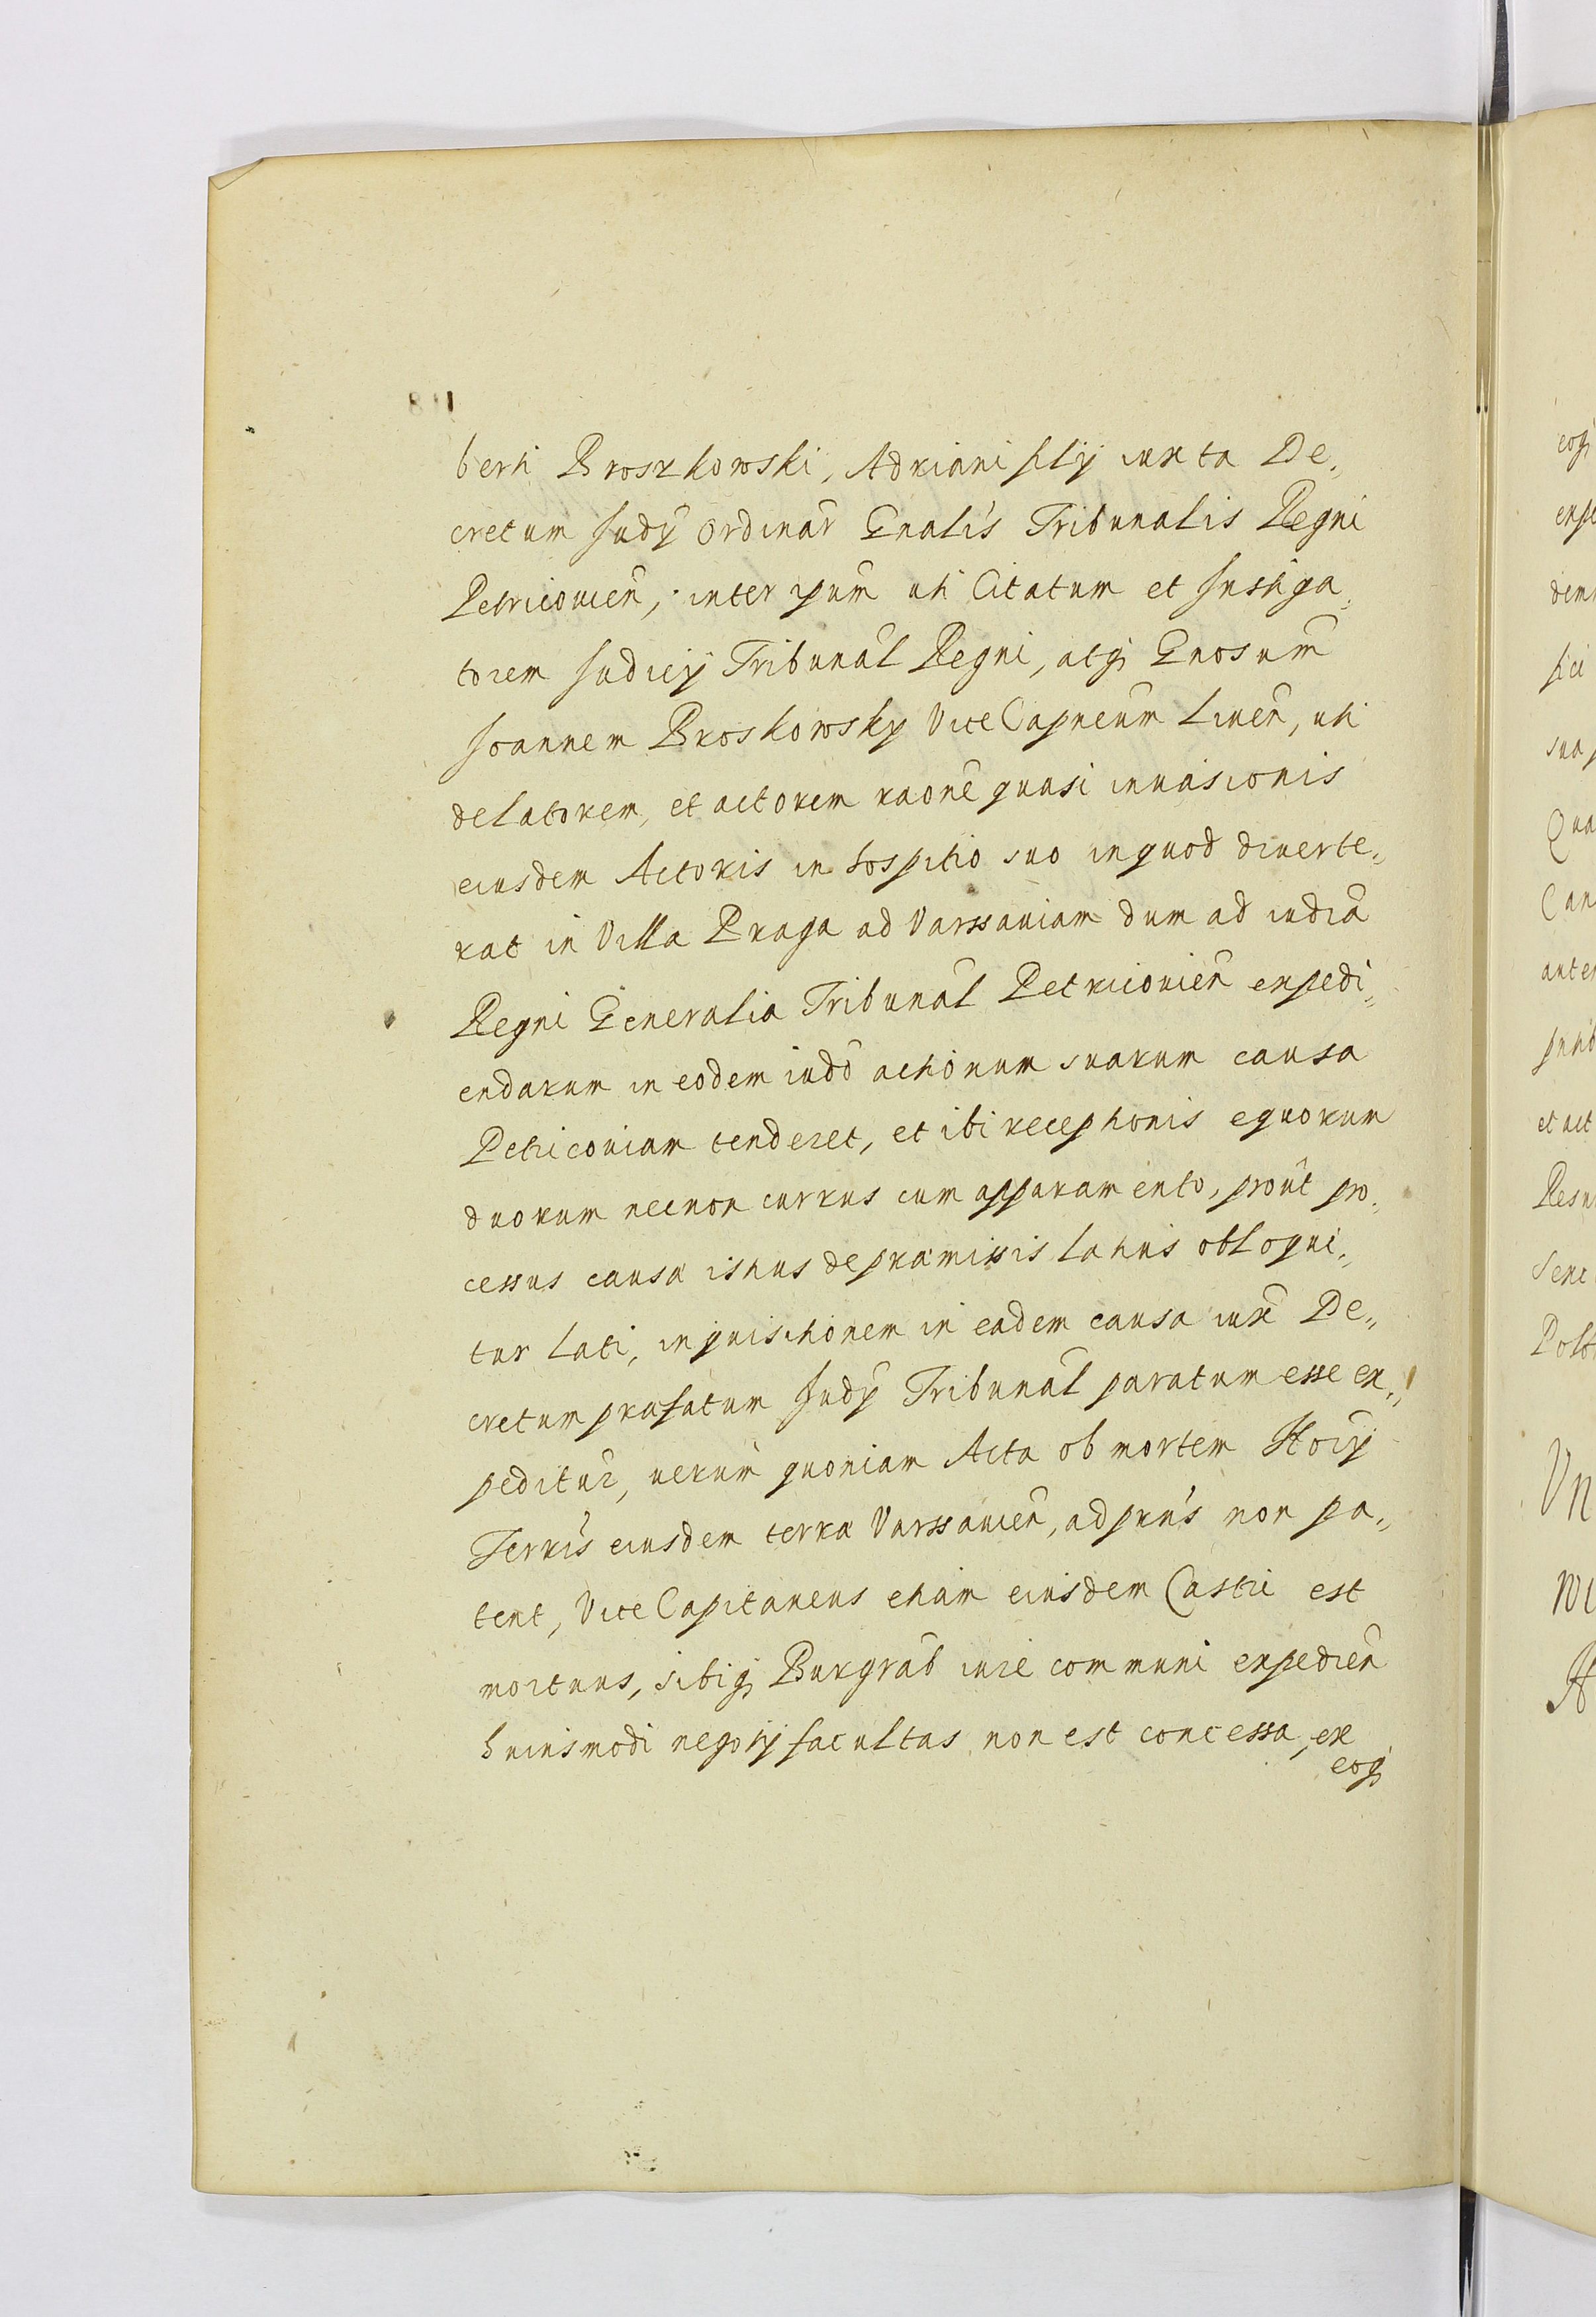 berti Broszkowski, Adriani filij iuxta De„
cretum Judÿ Ordinar̃ Gnalis Tribunalis Regni
Petricouien̄, inter ipum̃ uti Citatum et Instiga„
torem Judicij Tribunal̃ Regni, atq; Gnosum̃
Joannem Broskowsky ViceCapneum̃ Liuen̄, uti
delatorem, et actorem raone quasi inuasionis
eiusdem Actoris in hospitio suo in quod diuerte„
rat in Villa Praga ad Varssauiam dum ad iudia
Regni Generalia Tribunal̃ Petricouien̄ expedi„
endarum in eodem iudõ actionum suarum causa
Petricouiam tenderet, et ibi receptionis equorum
duorum necnon currus cum apparamento, prout pro„
cessus causæ istius de præmissis latius obloqui„
tur lati, inquisitionem in eadem causa iux̃ De„
cretum præfatum Judÿ Tribunal̃ paratum esse ex„
peditur̃, uerum quoniam Acta ob mortem Notrÿ
Terris eiusdem terræ Varssauien̄, ad præns non pa„
tent, ViceCapitaneus etiam eiusdem Castri est
mortuus, sibiq; Burgrab̃ iure communi expedien̄
huiusmodi negotij facultas non est concessa, ex
eoq;
eoq;
expe
demn
fici
sua p
Qua
Can
anter
et act
Resu
Sere
Polo
Vn
wi